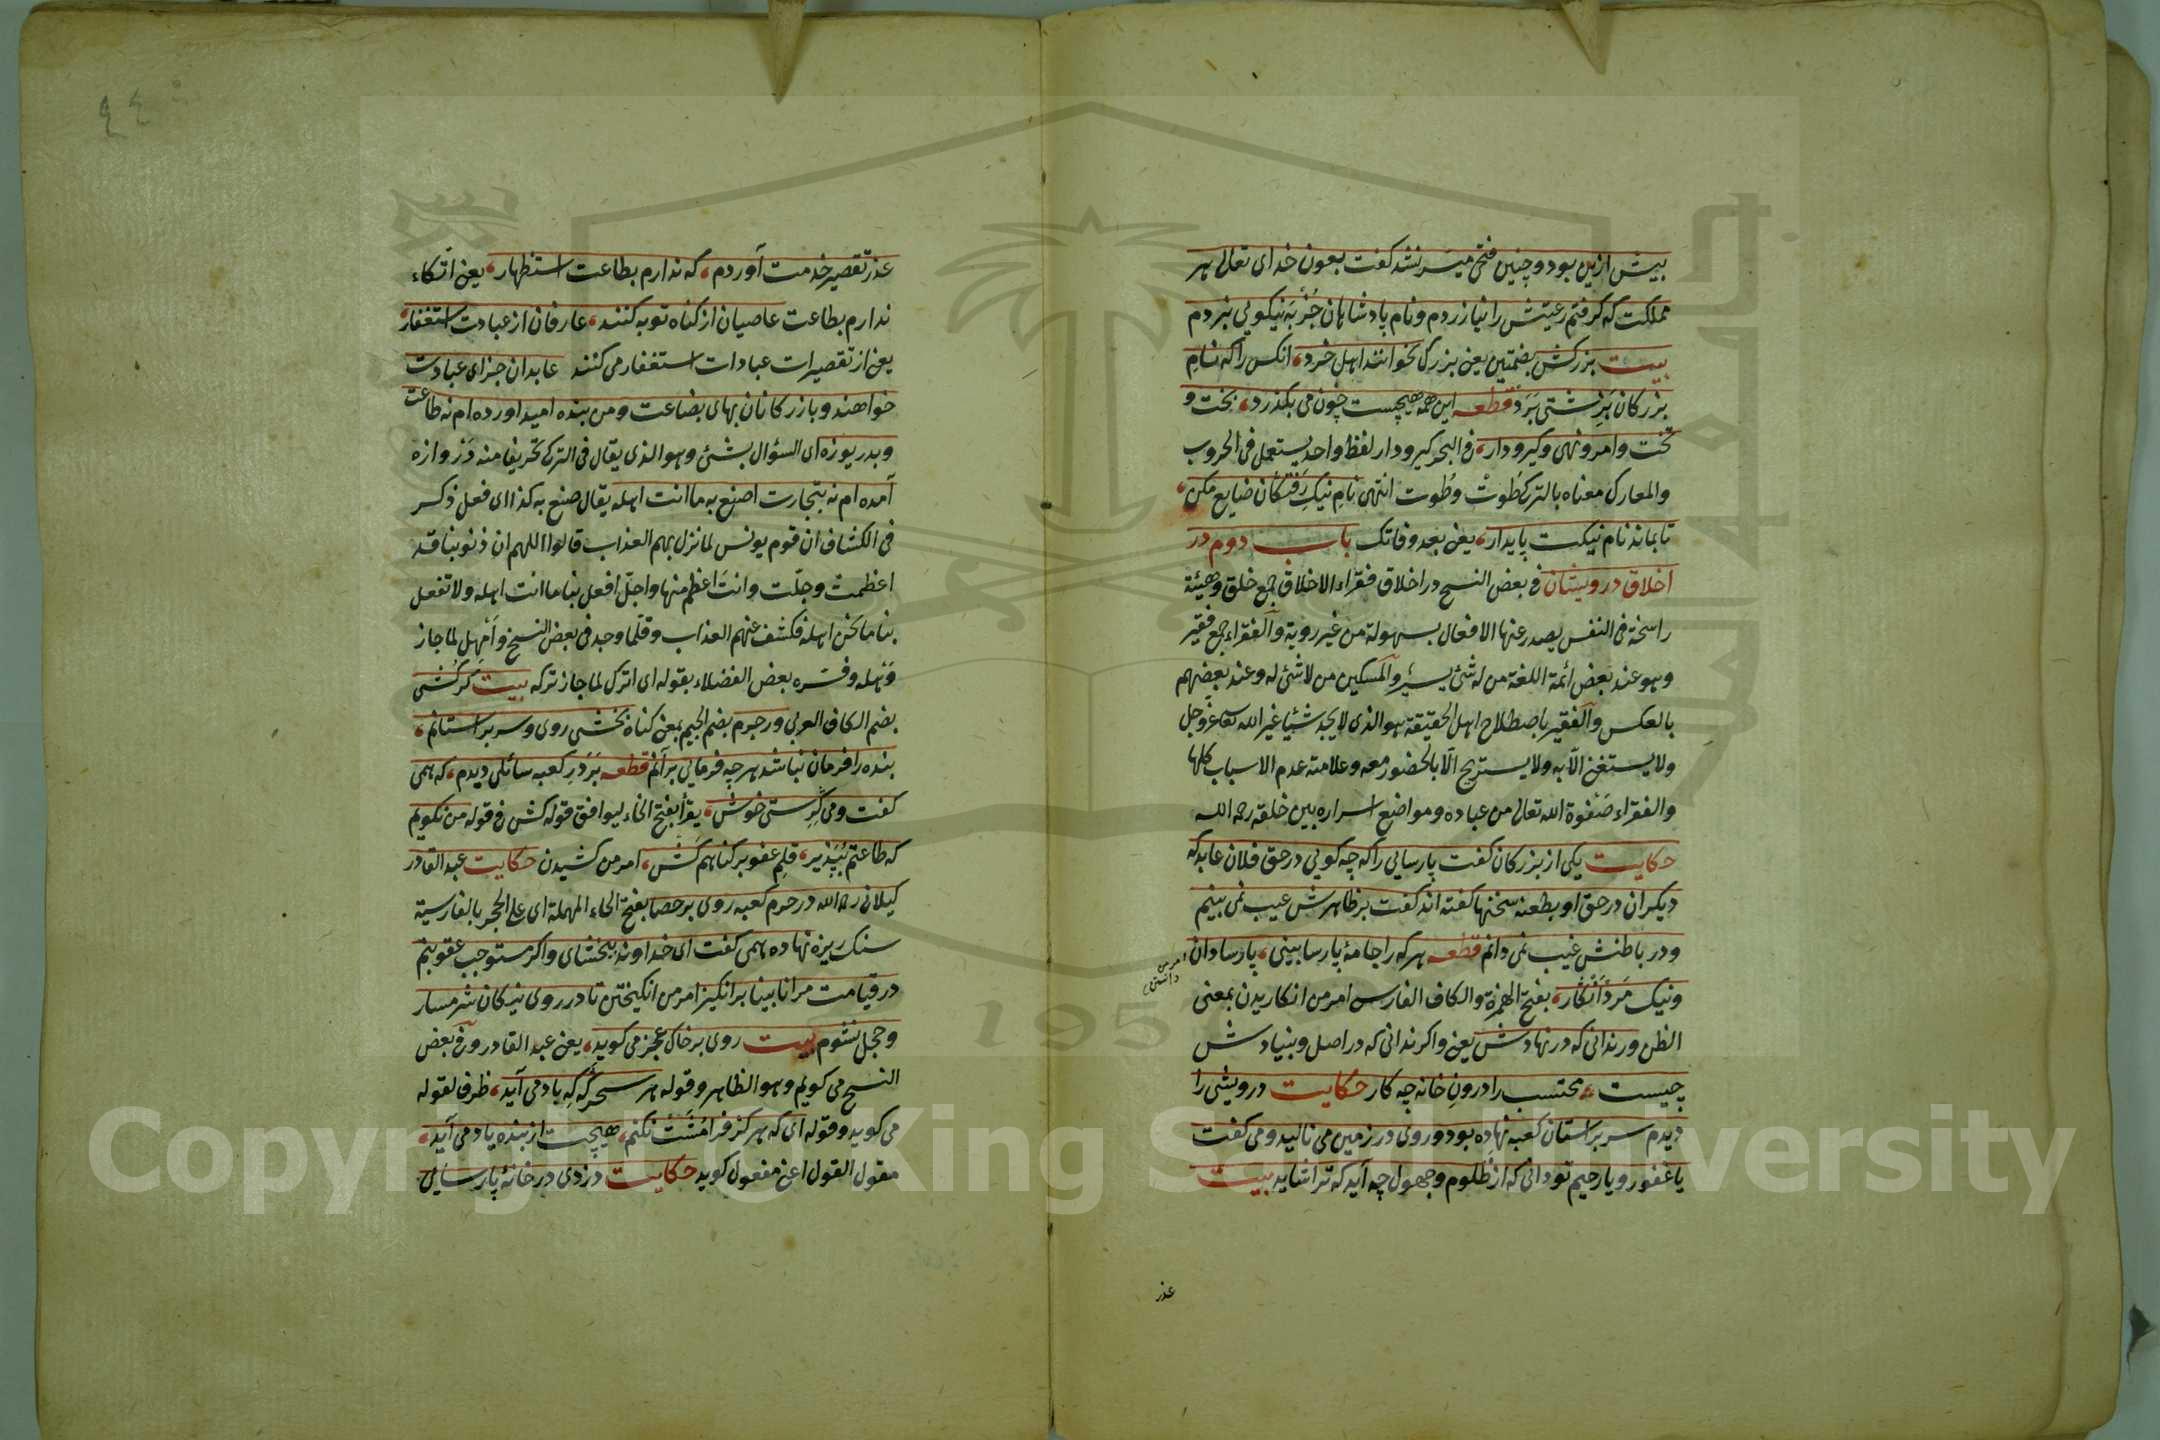 بیش ازین بود و چنین فتحی میسر نشد کفت بعون خدای تعالی هر
مملکت که کرفتم رعیتش را نیازردم و نام پادشاهان جز به نیکویی نبردم
بیت بزرکش بضمتین یعنی بزرك نخوانند اهل خرد، انکس راکه نام
بزرکان بزشتی برد قطعه این همه هیچست چون می بکذرد، بخت و
تخت و امر و نهی و کیرودار، فی البحر کیرودار لفظ واحد یستعمل فی الحروب
والمعارك معناه بالترك طوت وطوت انتهی نام نیك رفتکان ضایع مکن،
تا بماند نام نیکت پایدار، یعنی بعد وفاتك باب دوم در
اخلاق درویشان فی بعض النسخ در اخلاق فقراء الاخلاق جمع خلق وهیئة
راسخة فی النفس یصدر عنها الافعال بسهولة من غیر رویة والفقراء جمع فقیر
وهو عند بعض ائمة اللغة من له شئ یسیر والمسکین من لا شئ له وعند بعضهم
بالعکس والفقیر باصطلاح اهل الحقیقة هو الذی لا یجد شیئا غیر الله تعالی عز وجل
ولا یستغنی الا به ولا یستریح الا بالحضور معه وعلامته عدم الاسباب کلها
والفقراء صفوة الله تعالی من عباده ومواضع اسراره بین خلقه رحمه الله
حکایت یکی از بزرکان کفت پارسایی را که چه کویی در حق فلان عابد که
دیکران در حق او بطعنه سخنها کفته اند کفت بر ظاهرش عیب نمی بینم
و در باطنش غیب نمی دانم قطعه هر که را جامۀ پارسا بینی، پارسا دان
امر من داشتن
و نیک مرد انکار، بفتح الهمزة والکاف الفارس امر من انکاریدن بمعنی
الظن ور ندانی که در نهادش یعنی و اکر ندانی که در اصل و بنیادش
چیست، محتسب را درون خانه چه کار حکایت درویشی را
دیدم سر بر استان کعبه نهاده بود و روی در زمین می نالید و می کفت
یا غفور و یا رحیم تو دانی که از ظلوم و جهول چه آید که ترا شاید بیت
عذر
٤٤
عذر تقصیر خدمت آوردم، که ندارم بطاعت استظهار، یعنی اتکاء
ندارم بطاعت عاصیان از کناه توبه کنند، عارفان از عبادت استغفار،
یعنی از تقصیرات عبادات استغفار می کنند عابدان جزای عبادت
خواهند و بازرکانان بهای بضاعت و من بنده امید اورده ام نه طاعت
و بدریوزه ای السؤال بشئ وهو الذی یقال فی الترك تحریفا منه در وازه
آمده ام نه بتجارت اصنع به ما انت اهله یقال صنع به کذا ای فعل ذکر
فی الکشاف ان قوم یونس لما نزل بهم العذاب قالوا اللهم ان ذنوبنا قد
اعظمت وجلت وانت اعظم منها واجل افعل بنا ما انت اهله ولا تفعل
بنا ما نحن اهله فکشف عنهم العذاب وقلما وجد فی بعض النسخ وامهل لما جاز
وهله وفسره بعض الفضلاء بقوله ای اترك لما جاز ترکه بیت کر کشی
بضم الکاف العربی ور جرم بضم الجیم بمعنی کناه بخشی روی و سر بر استانم،
بنده را فرمان نباشد هر چه فرمایی برآنم قطعه بر در کعبه سائلی دیدم، که همی
کفت و می کرستی خوش، یقرأ بفتح الخاء لیوافق قوله کش فی قوله من نکویم
که طاعتم بپذیر، قلم عفو بر کناهم کش، امر من کشیدن حکایت عبد القادر
کیلانی رحمه الله در حرم کعبه روی بر حصا بفتح الحاء المهملة ای علی الحجر بالفارسیة
سنک ریزه نهاده همی کفت ای خداوند ببخشای و اکر مستوجب عقوبتم
در قیامت مرا نابینا بر انکیز امر من انکیختن تا در روی نیکان شرمسار
و خجل نشوم بیت روی بر خاك عجز می کوید، یعنی عبد القادر وفی بعض
النسخ می کویم وهو الظاهر وقوله هر سحرکه که باد می آید، ظرف لقوله
می کوید وقوله ای که هرکز فرامشت نکنم، هیچت از بنده یاد می آید،
مقول القول اعنی مفعول کوید حکایت دزدی در خانۀ پارسایی